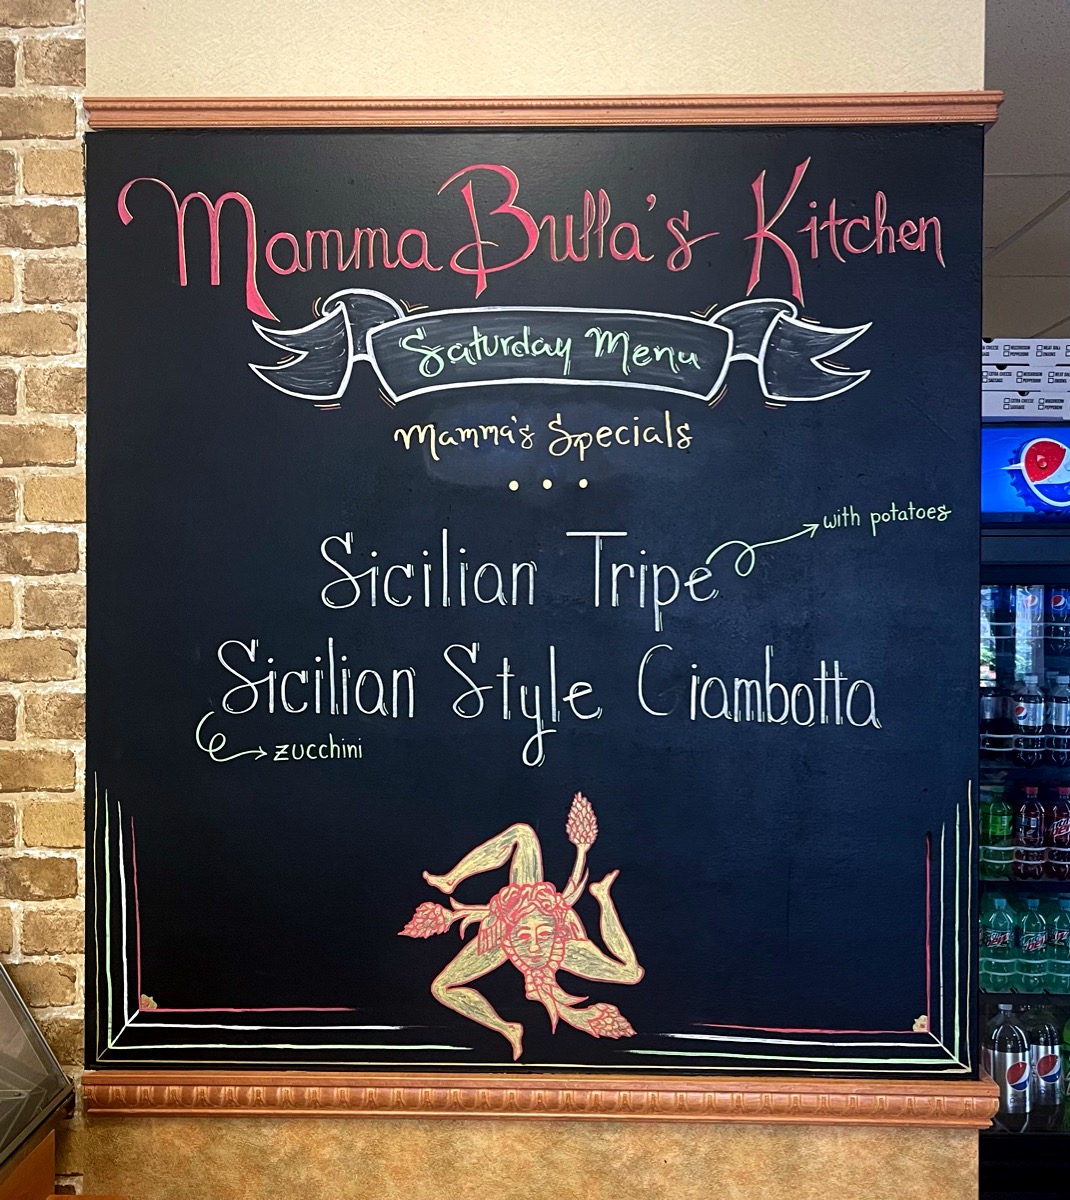 Mamma Bulla's Kitchen
Saturday Menu
Mamma's Specials
with potatoes
Sicilian Tripe
Sicilian Style Ciambotta
zucchini